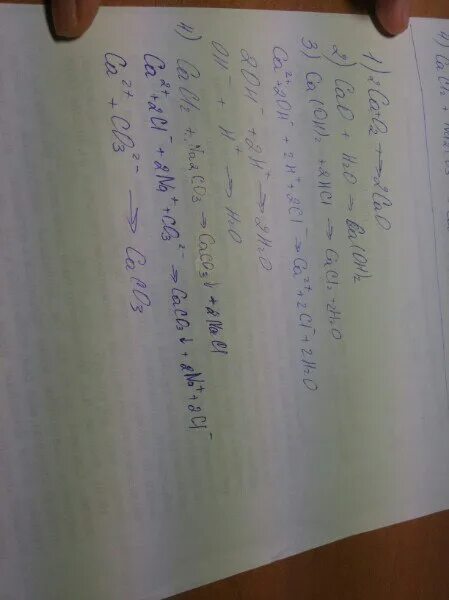 1) 2Ca+O₂ → 2CaO
2) CaO + H₂O → Ba(OH)₂
3) Ca(OH)₂ + 2HCl → CaCl₂ + 2H₂O
Ca²⁺ + 2OH⁻ + 2H⁺ + 2Cl⁻ → Ca²⁺ + 2Cl⁻ + 2H₂O
2OH⁻ + 2H⁺ → 2H₂O
OH⁻ + H⁺ → H₂O
4) CaCl₂ + Na₂CO₃ → CaCO₃↓ + 2NaCl
Ca²⁺ + 2Cl⁻ + 2Na⁺ + CO₃²⁻ → CaCO₃↓ + 2Na⁺ + 2Cl⁻
Ca²⁺ + CO₃²⁻ → CaCO₃
4) CaCl₂ +